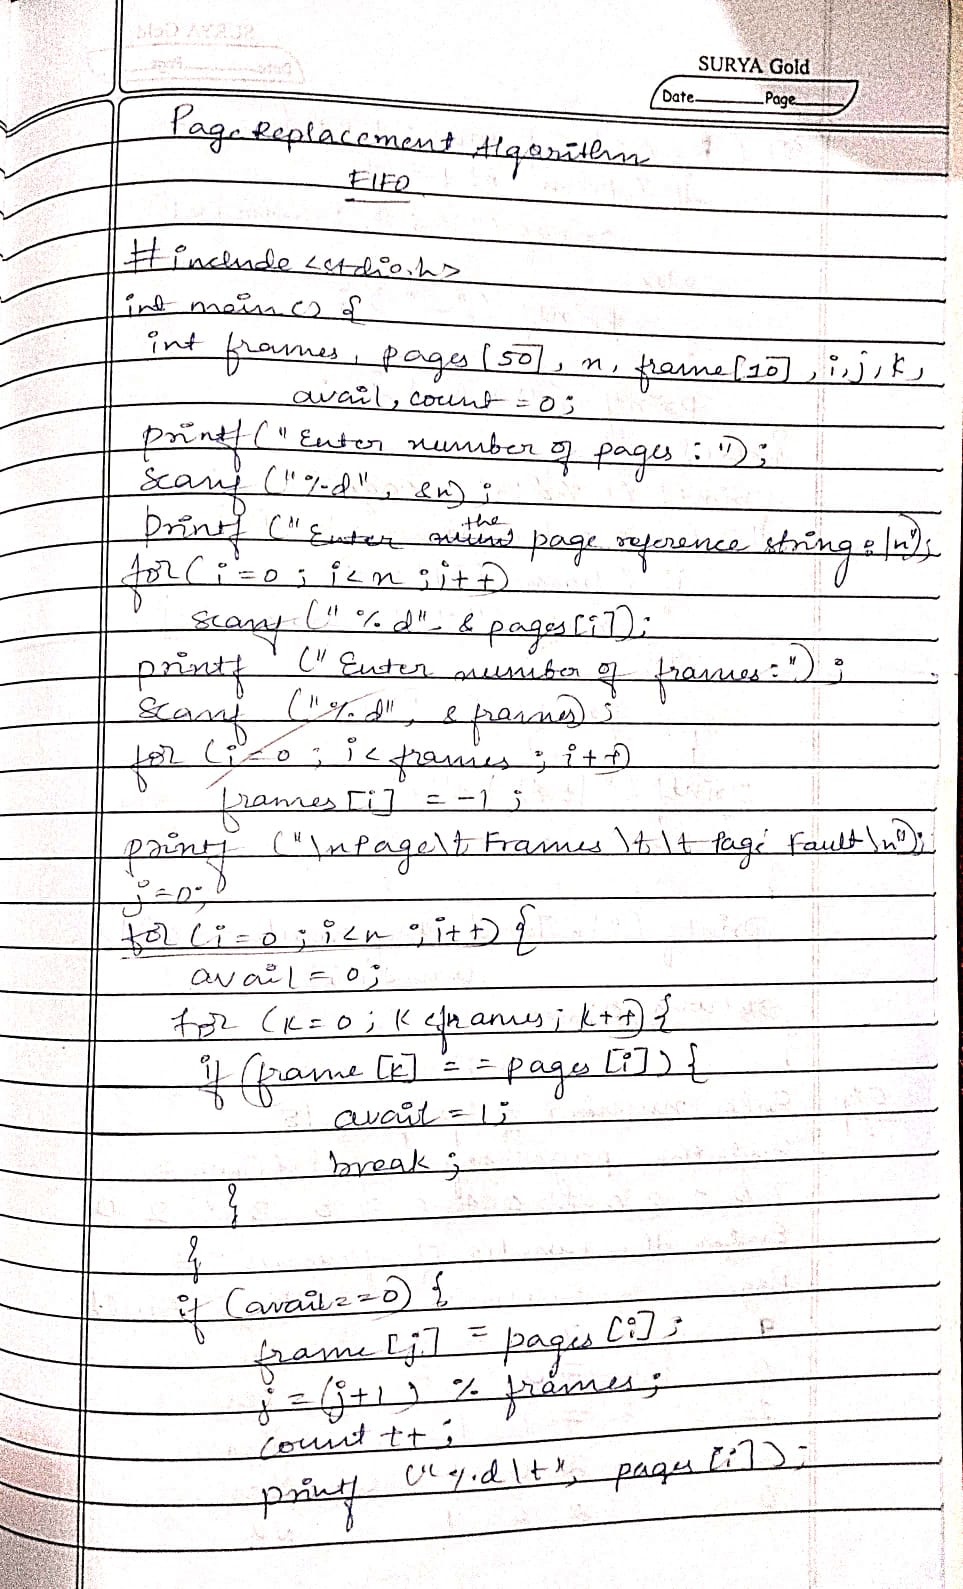 SURYA Gold
Date Page
Page Replacement Algorithm
FIFO
#include <stdio.h>
int main() {
int frames, pages[50], n, frame[10], i, j, k,
avail, count = 0;
printf("Enter number of pages : ");
scanf("%d", &n);
printf("Enter the page reference string: \n");
for(i=0; i<n; i++)
scanf("%d", &pages[i]);
printf("Enter number of frames: ");
scanf("%d", &frames);
for (i=0; i<frames; i++)
frames[i] = -1;
printf("\nPage\t Frames \t\t Page Fault\n");
j=0;
for (i=0; i<n; i++) {
avail = 0;
for (k=0; k<frames; k++) {
if (frame[k] == pages[i]) {
avail = 1;
break;
}
}
if (avail==0) {
frame[j] = pages[i];
j = (j+1) % frames;
count++;
printf("%d\t", pages[i]);